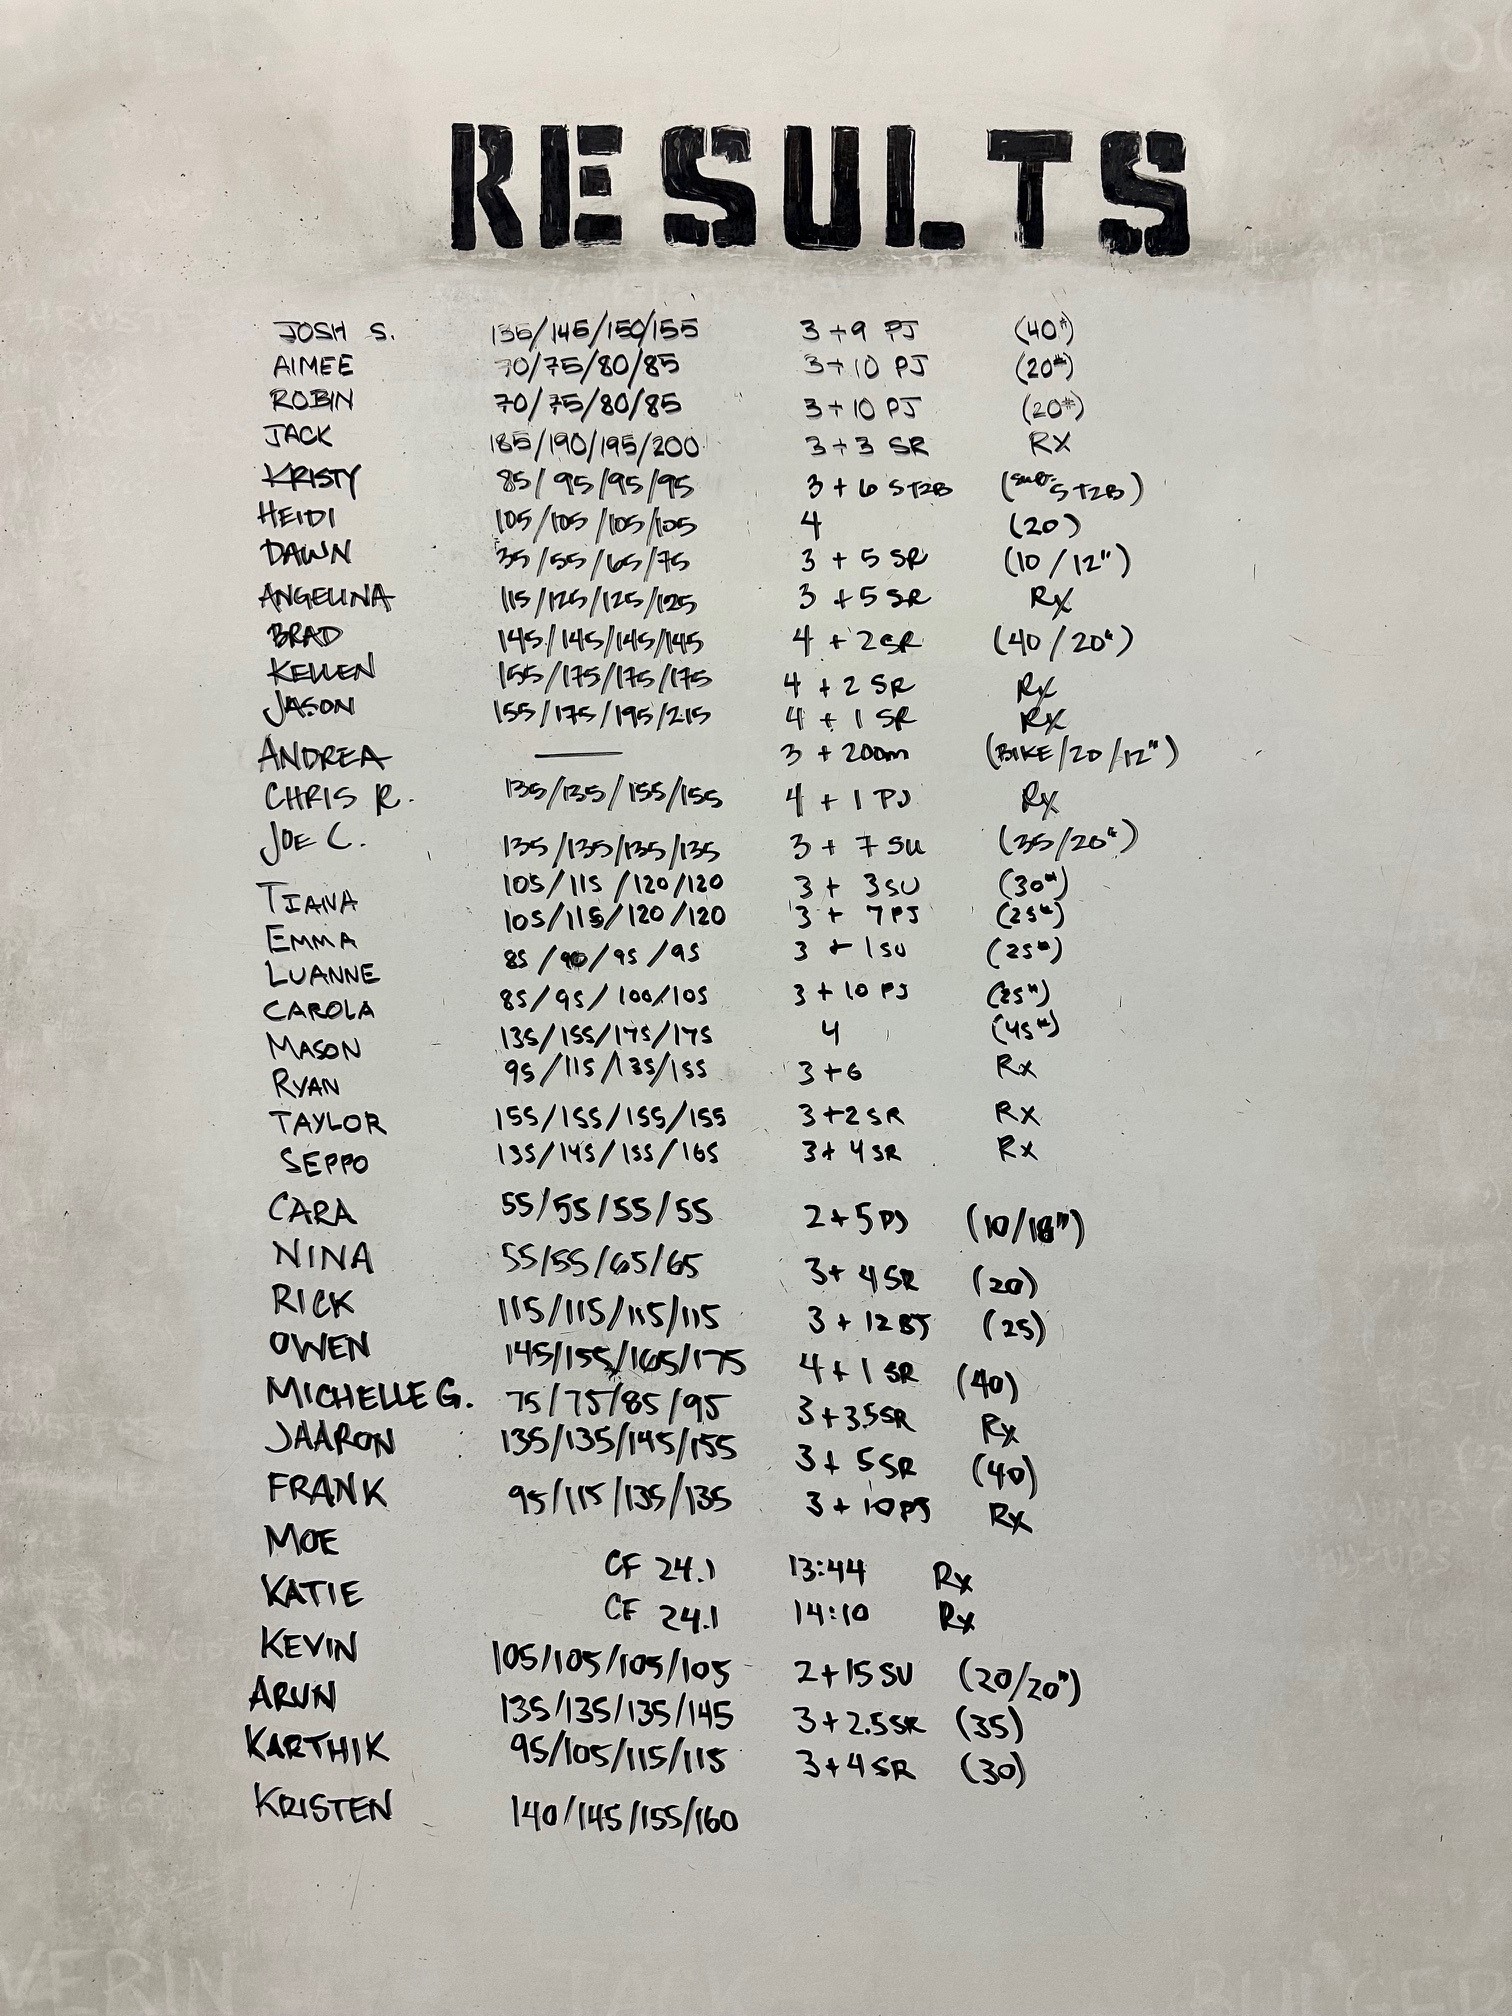 RESULTS
JOSH S. 135/145/150/155 3+9 PJ (40#)
AIMEE 70/75/80/85 3+10 PJ (20#)
ROBIN 70/75/80/85 3+10 PJ (20#)
JACK 185/190/195/200 3+3 SR RX
KRISTY 85/95/95/95 3+6 ST2B (SUB ST2B)
HEIDI 105/105/105/105 4 (20)
DAWN 35/55/65/75 3 + 5 SR (10/12")
ANGELINA 115/125/125/125 3 + 5 SR Rx
BRAD 145/145/145/145 4 + 2SR (40/20")
KELLEN 155/175/175/175 4 + 2 SR Rx
JASON 155/175/195/215 4 + 1 SR Rx
ANDREA — 3 + 200m (BIKE/20/12")
CHRIS R. 135/135/155/155 4 + 1 PJ Rx
JOE C. 135/135/135/135 3 + 7 SU (35/20")
TIANA 105/115/120/120 3 + 3SU (30#)
EMMA 105/115/120/120 3 + 7PJ (25#)
LUANNE 85/90/95/95 3 + 1SU (25#)
CAROLA 85/95/100/105 3+10 PJ (25#)
MASON 135/155/175/175 4 (45#)
RYAN 95/115/135/155 3+6 Rx
TAYLOR 155/155/155/155 3+2SR Rx
SEPPO 135/145/155/165 3+4SR Rx
CARA 55/55/55/55 2+5PJ (10/18")
NINA 55/55/65/65 3+4SR (20)
RICK 115/115/115/115 3+12BJ (25)
OWEN 145/155/165/175 4+1SR (40)
MICHELLE G. 75/75/85/95 3+3.5SR Rx
JAARON 135/135/145/155 3+5SR (40)
FRANK 95/115/135/135 3+10PJ Rx
MOE CF 24.1 13:44 Rx
KATIE CF 24.1 14:10 Rx
KEVIN 105/105/105/105 2+15SU (20/20")
ARUN 135/135/135/145 3+2.5SR (35)
KARTHIK 95/105/115/115 3+4SR (30)
KRISTEN 140/145/155/160